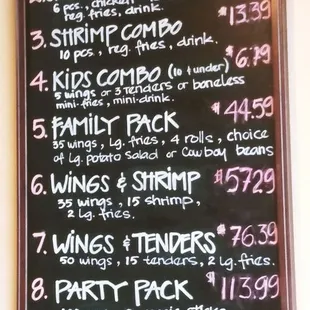 6 pcs., chicken
reg. fries, drink.
3. SHRIMP COMBO $13.39
10 pcs., reg. fries, drink.
4. KIDS COMBO (10 & under) $6.79
5 wings or 3 tenders or boneless
mini-fries, mini-drink.
5. FAMILY PACK $44.59
35 wings, Lg. fries, 4 rolls, choice
of Lg. potato Salad or Cowboy beans
6. WINGS & SHRIMP $57.29
35 wings, 15 shrimp,
2 Lg. fries.
7. WINGS & TENDERS $76.39
50 wings, 15 tenders, 2 Lg. fries.
8. PARTY PACK $113.99